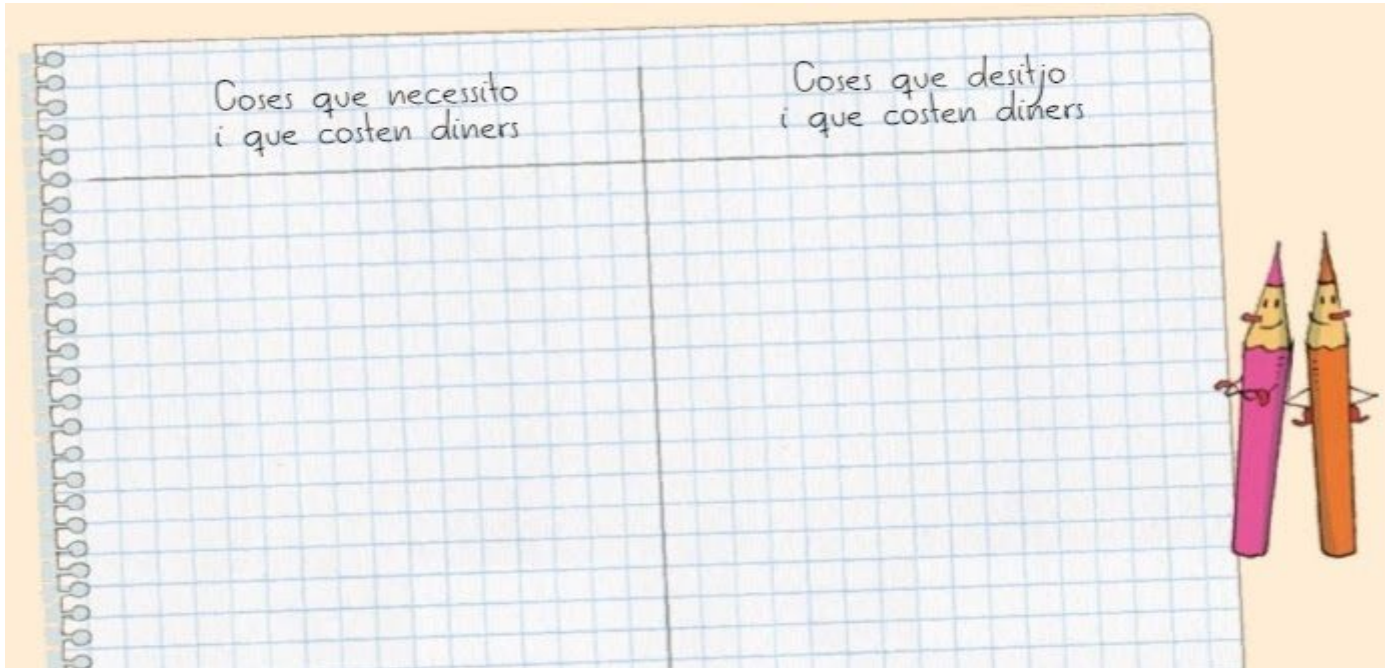 Coses que necessito
i que costen diners
Coses que desitjo
i que costen diners